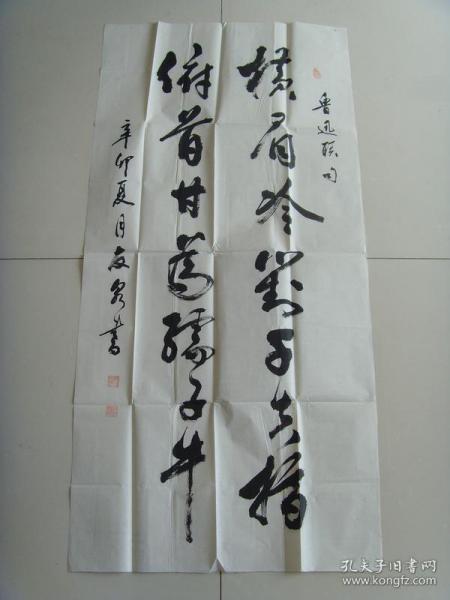 鲁迅联句
横眉冷對千夫指
俯首甘為孺子牛
辛卯夏月友書
孔夫子旧书网
www.kongfz.com